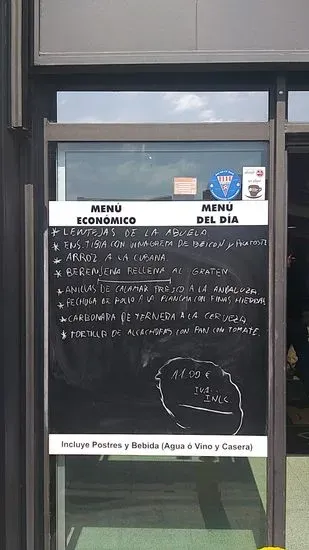 MENÚ ECONÓMICO
MENÚ DEL DÍA
* LENTEJAS DE LA ABUELA
* ENS. TIBIA CON VINAGRETA DE BEICON y
* ARROZ A LA CUBANA.
* BERENJENA RELLENA AL GRATEN
* ANILLAS DE CALAMAR FRESCO A LA ANDALUZA
* PECHUGA DE POLLO A LA PLANCHA CON FINAS HIERBAS
* CARBONADA DE TERNERA A LA CERVEZA
* TORTILLA DE ALCACHOFAS CON PAN CON TOMATE.
11.00 €
I.V.A.
INLC.
Incluye Postres y Bebida (Agua ó Vino y Casera)